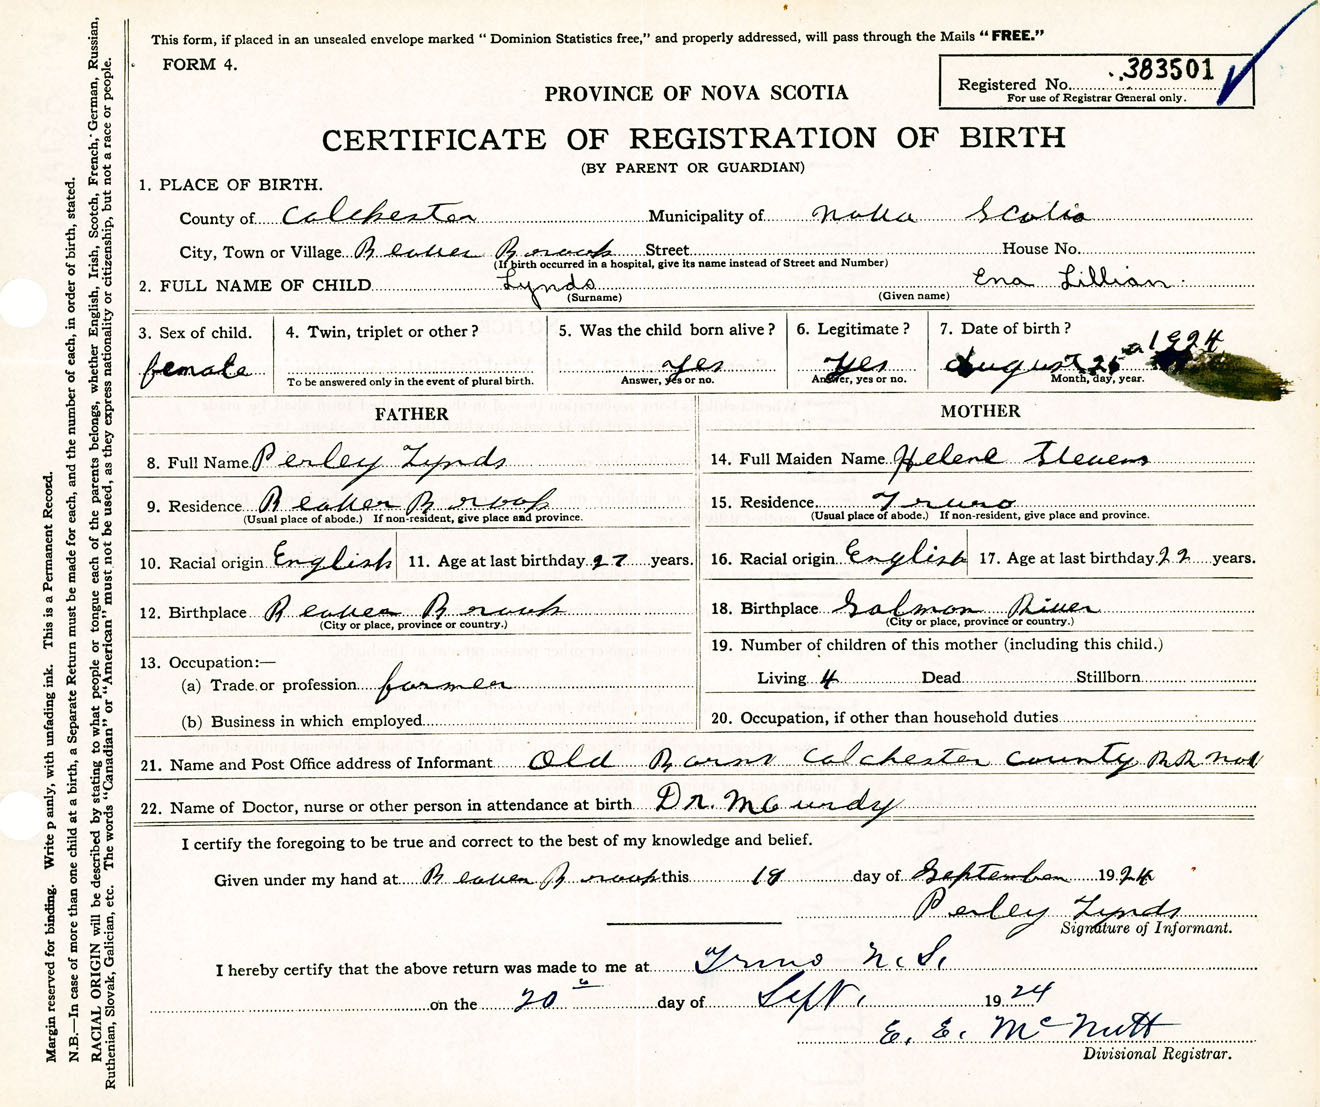 This form, if placed in an unsealed envelope marked " Dominion Statistics free," and properly addressed, will pass through the Mails " FREE."
FORM 4.
383501
Registered No.
For use of Registrar General only.
PROVINCE OF NOVA SCOTIA
CERTIFICATE OF REGISTRATION OF BIRTH
(BY PARENT OR GUARDIAN)
1. PLACE OF BIRTH.
County of Colchester Municipality of Nova Scotia
City, Town or Village Beaver Brook Street House No.
(If birth occurred in a hospital, give its name instead of Street and Number)
2. FULL NAME OF CHILD Lynds Ena Lillian
(Surname) (Given name)
3. Sex of child. 4. Twin, triplet or other? 5. Was the child born alive? 6. Legitimate? 7. Date of birth?
female Yes Yes August 25 1924
To be answered only in the event of plural birth. Answer, yes or no. Answer, yes or no. Month, day, year.
FATHER MOTHER
8. Full Name Perley Lynds 14. Full Maiden Name Helene Stevens
9. Residence Beaver Brook 15. Residence Truro
(Usual place of abode.) If non-resident, give place and province. (Usual place of abode.) If non-resident, give place and province.
10. Racial origin English 11. Age at last birthday 27 years. 16. Racial origin English 17. Age at last birthday 22 years.
12. Birthplace Beaver Brook 18. Birthplace Salmon River
(City or place, province or country.) (City or place, province or country.)
19. Number of children of this mother (including this child.)
13. Occupation:—
(a) Trade or profession farmer Living 4 Dead Stillborn
(b) Business in which employed 20. Occupation, if other than household duties
21. Name and Post Office address of Informant Old Barns Colchester County RR No 1
22. Name of Doctor, nurse or other person in attendance at birth Dr. McCurdy
I certify the foregoing to be true and correct to the best of my knowledge and belief.
Given under my hand at Beaver Brook this 18 day of September 1924
Perley Lynds
Signature of Informant.
I hereby certify that the above return was made to me at Truro N.S.
on the 20 day of Sept. 1924
E. E. McNutt
Divisional Registrar.
Margin reserved for binding. Write p ainly, with unfading ink. This is a Permanent Record.
N.B.—In case of more than one child at a birth, a Separate Return must be made for each, and the number of each, in order of birth, stated.
RACIAL ORIGIN will be described by stating to what people or tongue each of the parents belongs, whether English, Irish, Scotch, French, German, Russian,
Ruthenian, Slovak, Galician, etc. The words "Canadian" or "American" must not be used, as they express nationality or citizenship, but not a race or people.